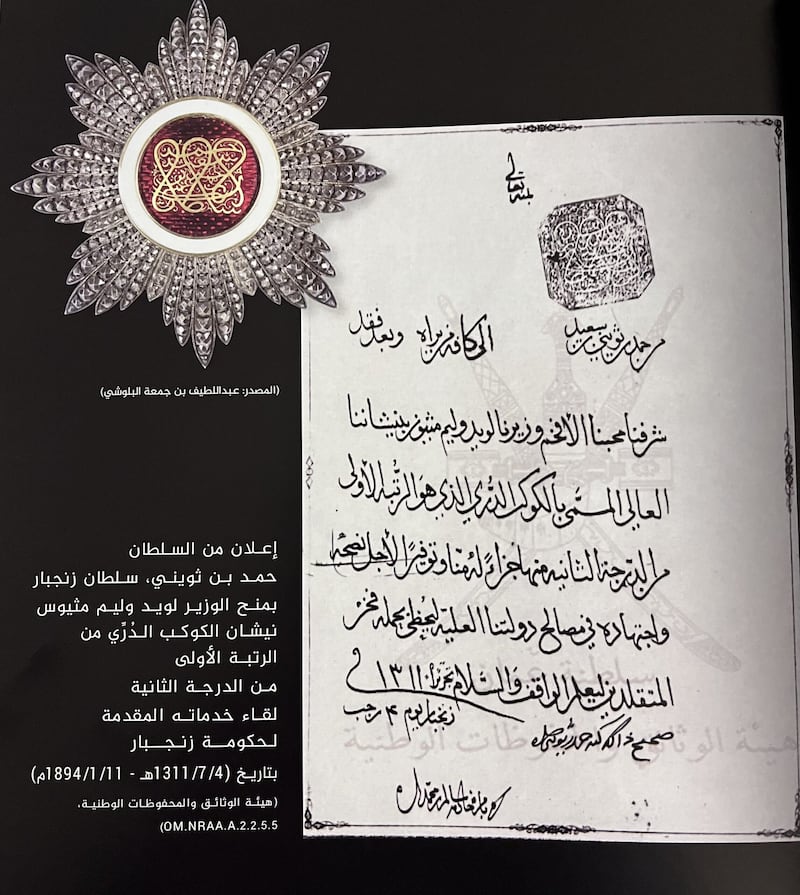 (المصدر: عبداللطيف بن جمعة البلوشي)
إعلان من السلطان
حمد بن ثويني، سلطان زنجبار
بمنح الوزير لويد وليم مثيوس
نيشان الكوكب الدُرِّي من
الرتبة الأولى
من الدرجة الثانية
لقاء خدماته المقدمة
لحكومة زنجبار
بتاريخ (1311/7/4هـ - 1894/1/11م)
(هيئة الوثائق والمحفوظات الوطنية،
OM.NRAA.A.2.2.5.5)
بمنه تعالى
من حمد بن ثويني بن سعيد الى كافة من يراه وبعد فقد
شرفنا محبنا الأفخم وزيرنا لويد وليم مثيوز بنيشاننا
العالي المسمى بالكوكب الدُّري الذي هو الرتبة الأولى
من الدرجة الثانيه منها جزاءً له منا وتوفيرًا لأجل نصحه
واجتهاده في مصالح دولتنا العلية ليحظى بحمله فخر
المتقلدين ليعلم الواقف والسلام تحريرًا في ١٣١١
زنجبار يوم ٤ رجب
صحيح ذالك كتبه حمد بيده